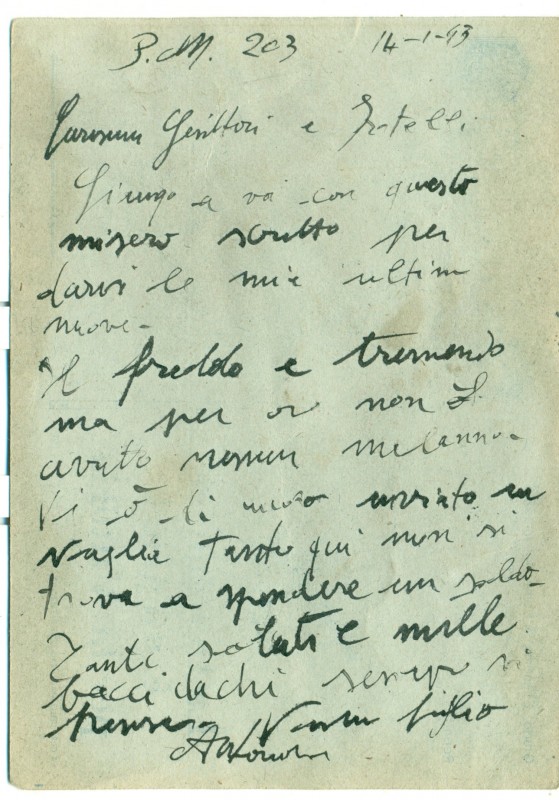 P.M. 203 14-1-43
Carissimi Genittori e Fratelli
Giungo a voi con questo
misero scritto per
darvi le mie ultime
nuove-
Il freddo e tremendo
ma per or non
avutto nessun malanno-
Vi ò di nuovo inviato un
vaglia tanto qui non si
trova a spendere un soldo-
Tanti saluti e mille
bacci dachi sempre vi
pensa- Vostro figlio
Antonio